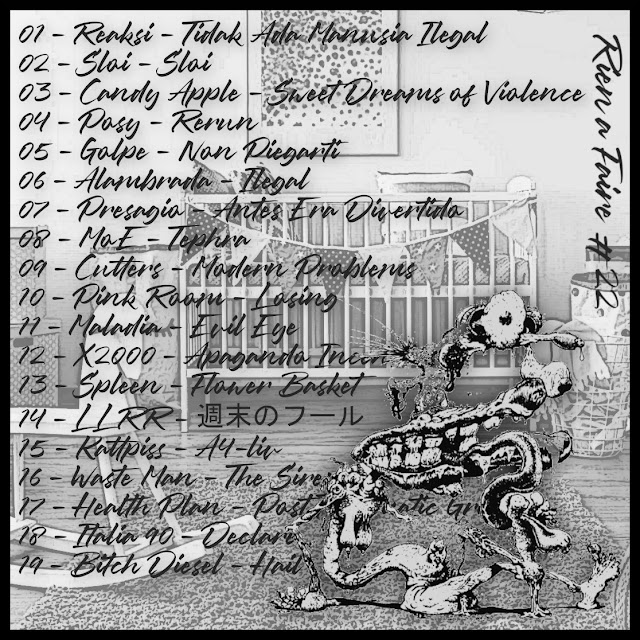 01 - Reaksi - Tidak Ada Manusia Ilegal
02 - Sloi - Sloi
03 - Candy Apple - Sweet Dreams of Violence
04 - Posy - Rerun
05 - Golpe - Non Piegarti
06 - Alambrada - Ilegal
07 - Presagio - Antes Era Divertido
08 - MoE - Tephra
09 - Cutters - Modern Problems
10 - Pink Room - Losing
11 - Maladia - Evil Eye
12 - X2000 - Apagando
13 - Spleen - Flower Basket
14 - LLRR - 週末のフール
15 - Kattpiss - A4-liv
16 - Waste Man - The
17 - Health Plan - Post
18 - Italia 90 - Declare
19 - Bitch Diesel - Hail
Rien a Faire # 22